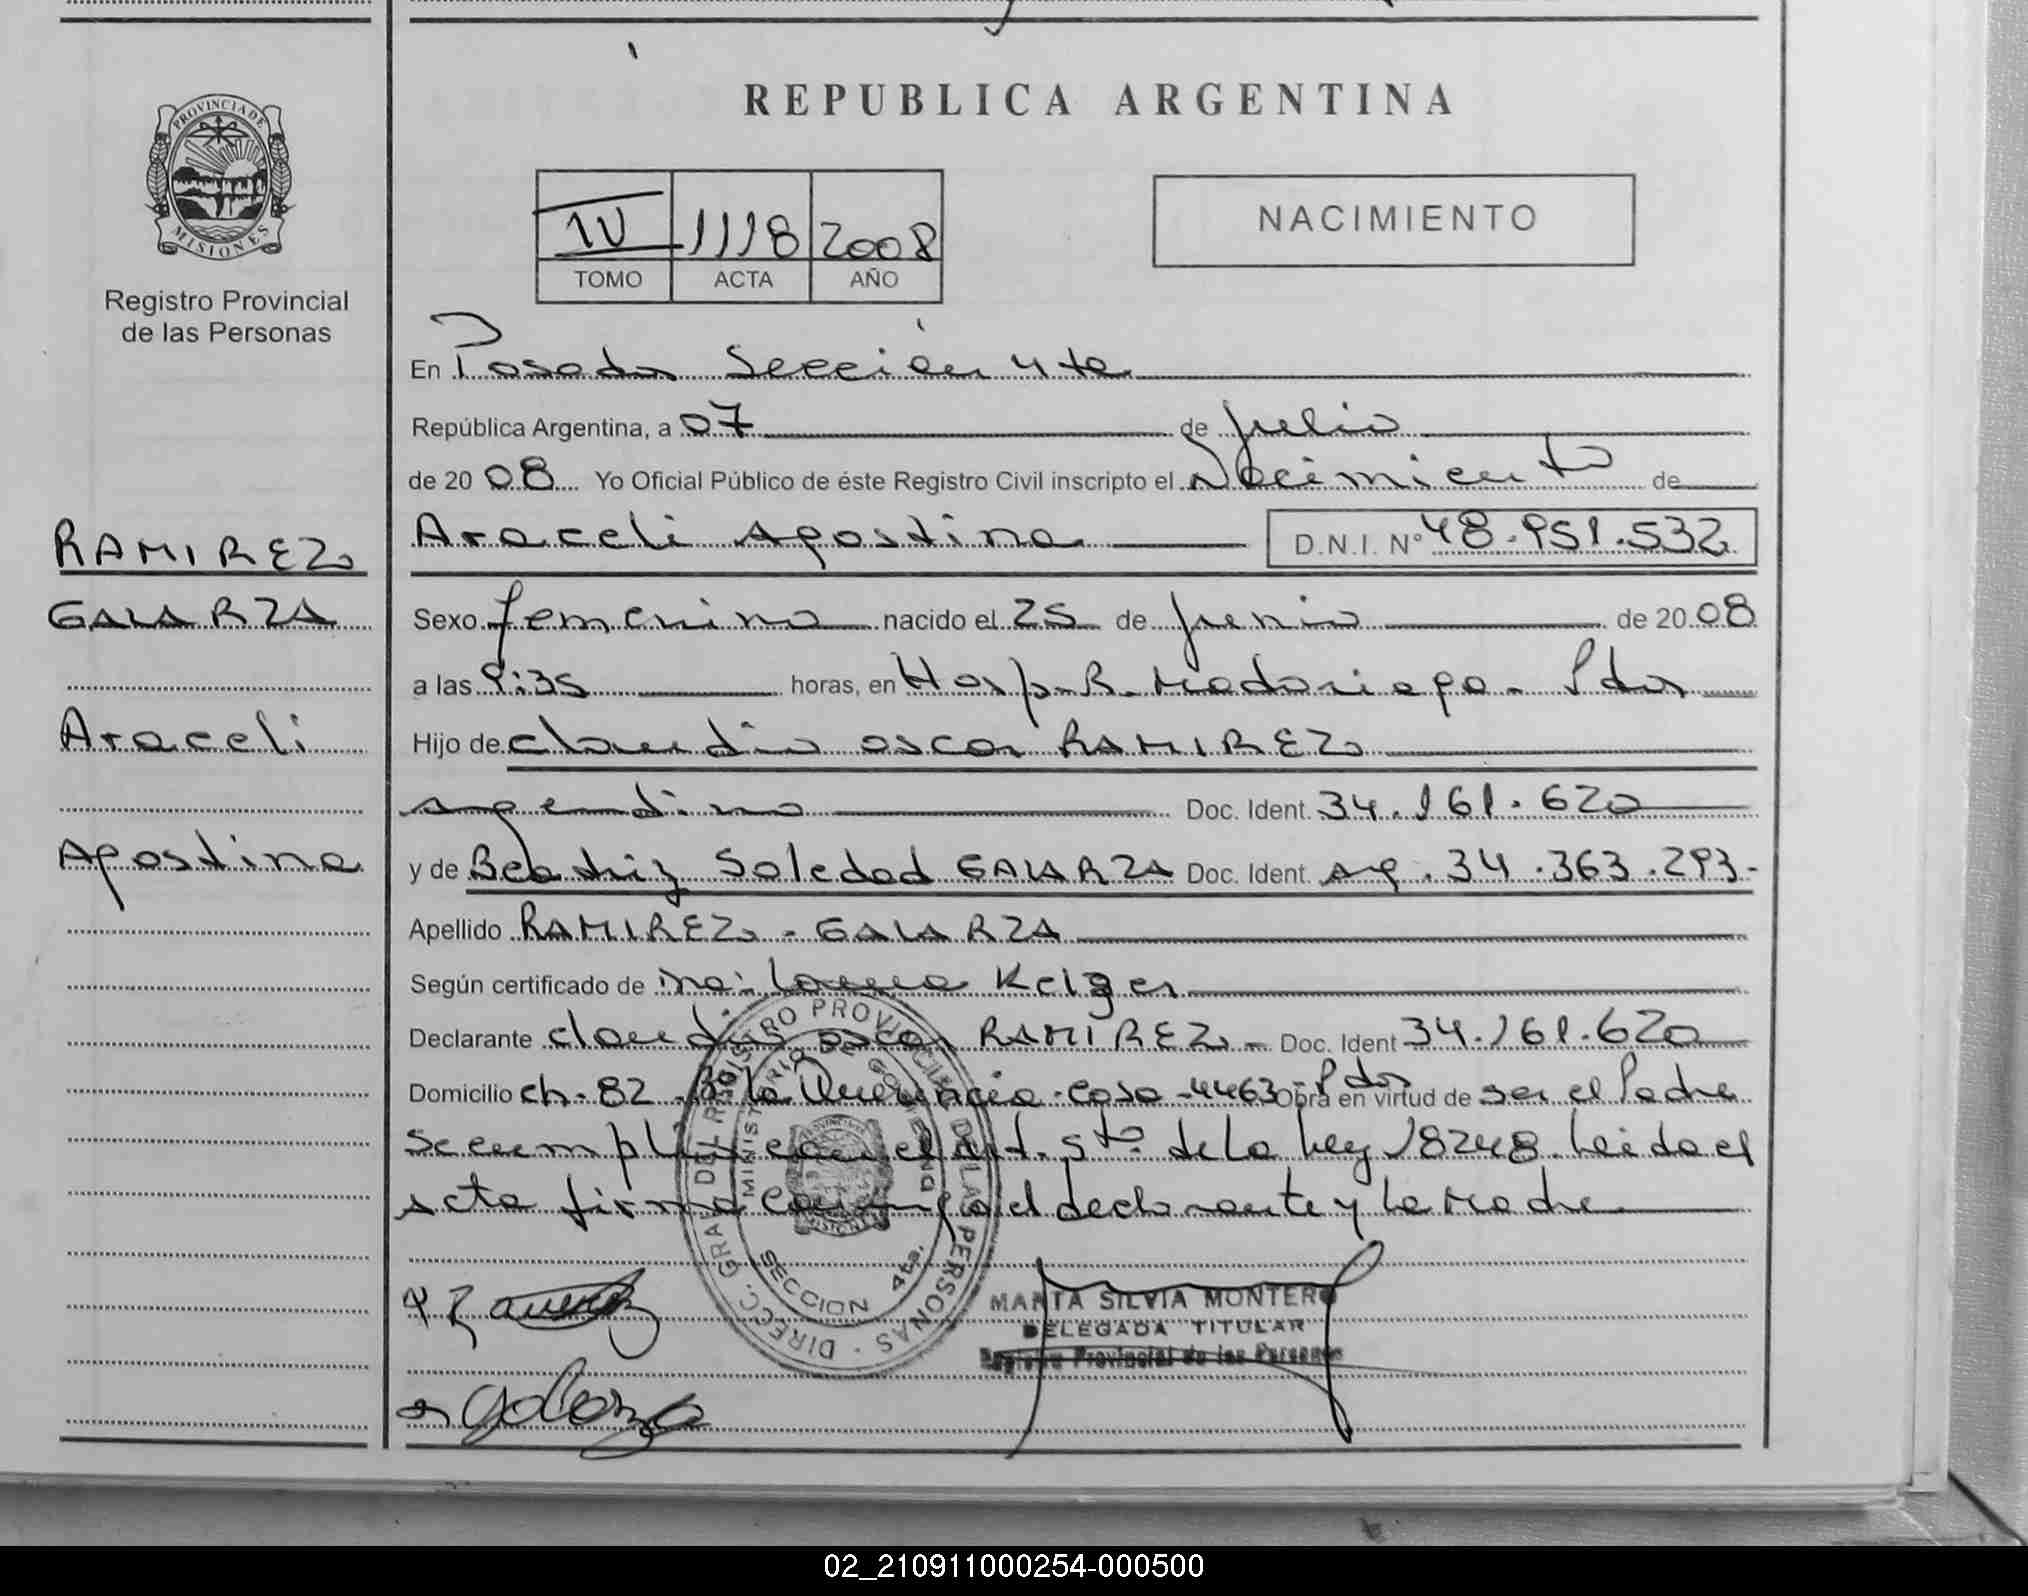 PROVINCIA DE
MISIONES
Registro Provincial
de las Personas
RAMIREZ
GALARZA
Araceli
Agostina
REPUBLICA ARGENTINA
IV 1118 2008
TOMO ACTA AÑO
NACIMIENTO
En Posadas Sección 4ta
República Argentina, a 07 de julio
de 2008 Yo Oficial Público de éste Registro Civil inscripto el Nacimiento de
Araceli Agostina D.N.I. N° 48.951.532
Sexo femenino nacido el 25 de junio de 2008
a las 9:35 horas, en Hosp. R. Madariaga - Pdas
Hijo de Claudio Oscar RAMIREZ
argentino Doc. Ident. 34.161.620
y de Beatriz Soledad GALARZA Doc. Ident. arg. 34.363.293-
Apellido RAMIREZ - GALARZA
Según certificado de Kelger
Declarante Claudio Oscar RAMIREZ - Doc. Ident 34.161.620
Domicilio ch. 82 Bº la Querencia - casa - 4463 - Pdas Obra en virtud de ser el Padre
Se cumplió con el art. 5to de la ley 18248. Leida el
acta firma conmigo el declarante y la Madre
DIRECC. GRAL. DEL REGISTRO PROVINCIAL DE LAS PERSONAS
MINISTERIO DE GOBIERNO
SECCION 4ta.
MARTA SILVIA MONTERO
DELEGADA TITULAR
Registro Provincial de las Personas
02_210911000254-000500